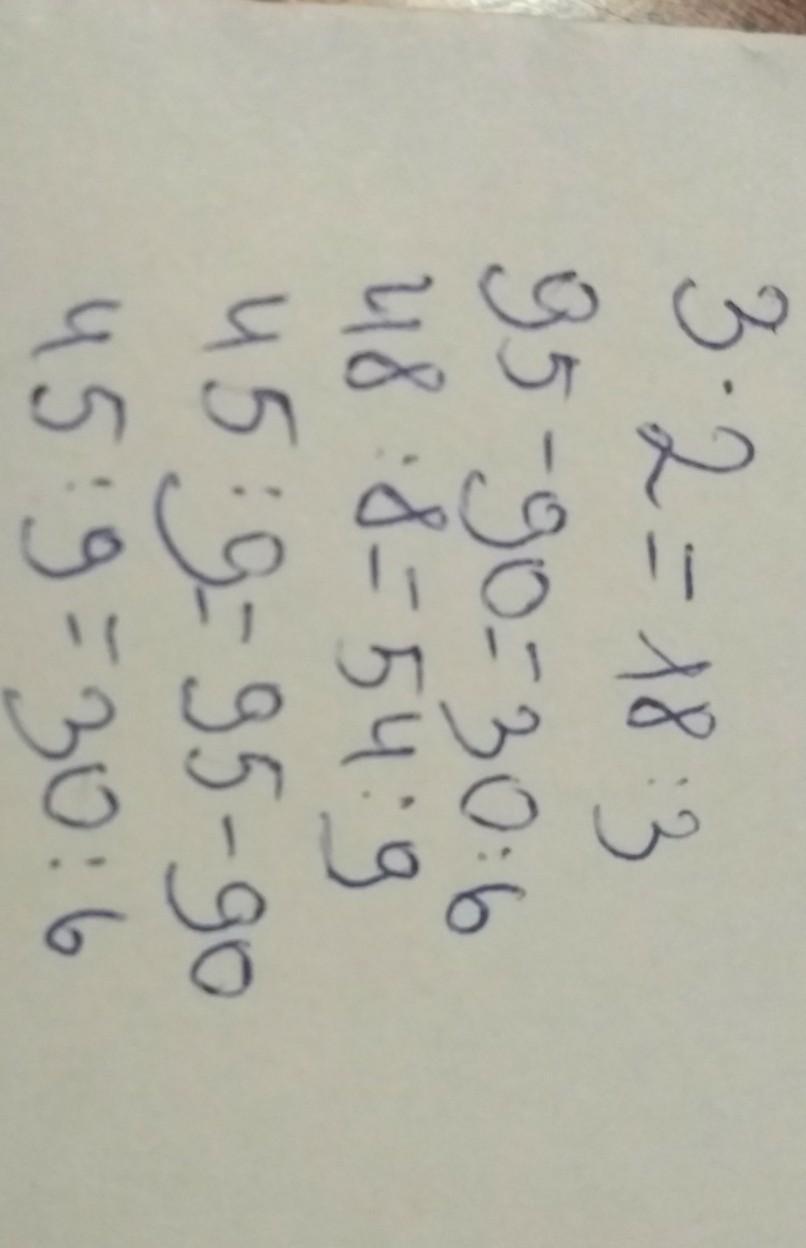 3 · 2 = 18 : 3
95 - 90 = 30 : 6
48 : 8 = 54 : 9
45 : 9 = 95 - 90
45 : 9 = 30 : 6